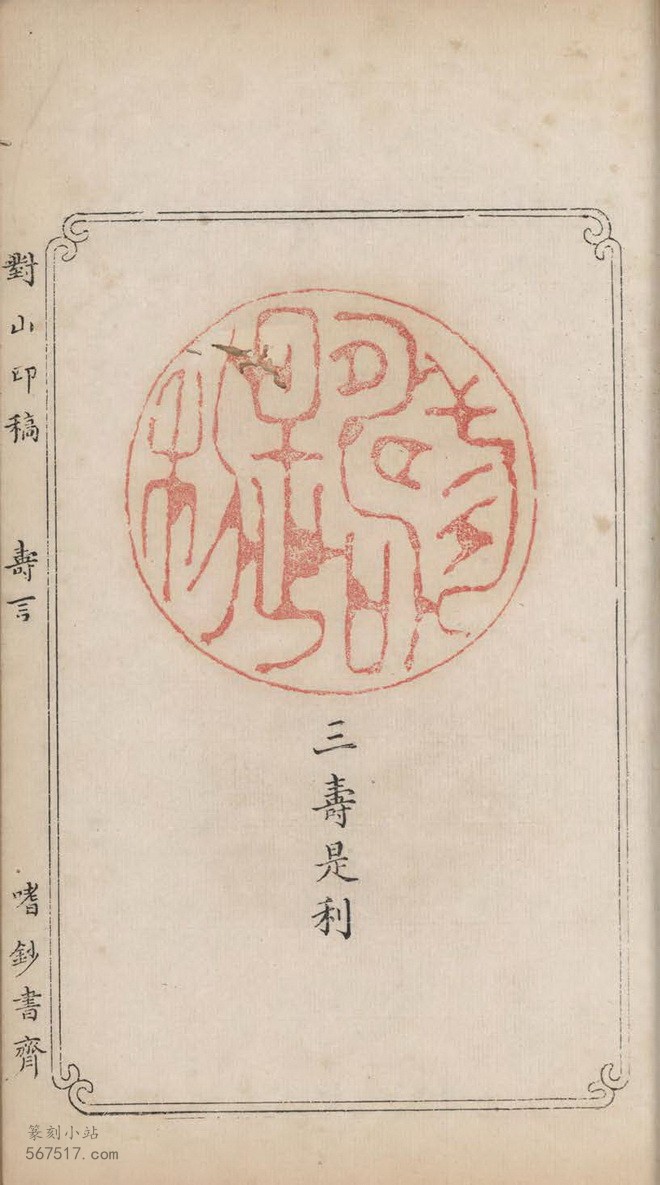 三壽是利
對山印稿 壽言 嗜鈔書齋
篆刻小站
567517.com